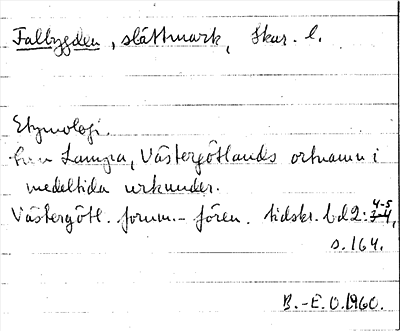 Falbygden, slåttmark, Skar. l.
Etymologi.
Lampa, Västergötlands ortnamn i
medeltida urkunder.
Västergötl. fornm.-fören. tidskr. bd 2: 4-5,
s. 164.
B.-E. O. 1960.